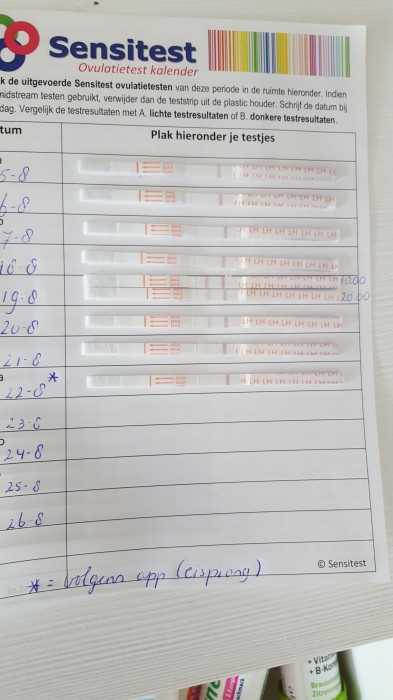 Sensitest
Ovulatietest kalender
k de uitgevoerde Sensitest ovulatietesten van deze periode in de ruimte hieronder. Indien
midstream testen gebruikt, verwijder dan de teststrip uit de plastic houder. Schrijf de datum bij
dag. Vergelijk de testresultaten met A. lichte testresultaten of B. donkere testresultaten.
tum
Plak hieronder je testjes
5-8
LH LH LH LH LH LH
6-8
LH LH LH LH LH LH
7-8
LH LH LH LH LH LH LH
18-8
LH LH LH LH LH LH LH
LH LH LH LH LH LH
19-8
LH LH LH LH LH LH LH 20.00
20-8
LH LH LH LH LH LH LH
21-8
LH LH LH LH LH LH
22-8 *
LH LH LH LH LH LH
23-8
24-8
25-8
26-8
* = volgens app (eisprong)
© Sensitest
+ Vita
+ B-Kom
Brau
Zitro